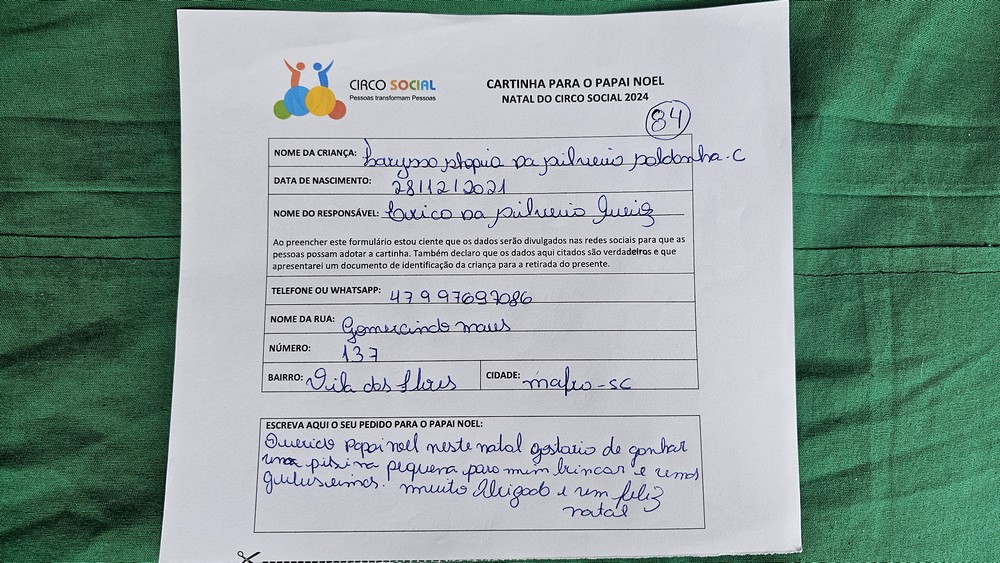 CIRCO SOCIAL
Pessoas transformam Pessoas
CARTINHA PARA O PAPAI NOEL
NATAL DO CIRCO SOCIAL 2024
84
NOME DA CRIANÇA: da silveira saldanha. C
DATA DE NASCIMENTO: 28/12/2021
NOME DO RESPONSÁVEL: da silveira
Ao preencher este formulário estou ciente que os dados serão divulgados nas redes sociais para que as
pessoas possam adotar a cartinha. Também declaro que os dados aqui citados são verdadeiros e que
apresentarei um documento de identificação da criança para a retirada do presente.
TELEFONE OU WHATSAPP: 47 9 97697086
NOME DA RUA: Gomercindo maus
NÚMERO: 137
BAIRRO: Vila das flores CIDADE: mafra-SC
ESCREVA AQUI O SEU PEDIDO PARA O PAPAI NOEL:
Querido Papai noel neste natal gostario de ganhar
uma pisina pequena para mim brincar e umas
muito Obrigado e um feliz
natal